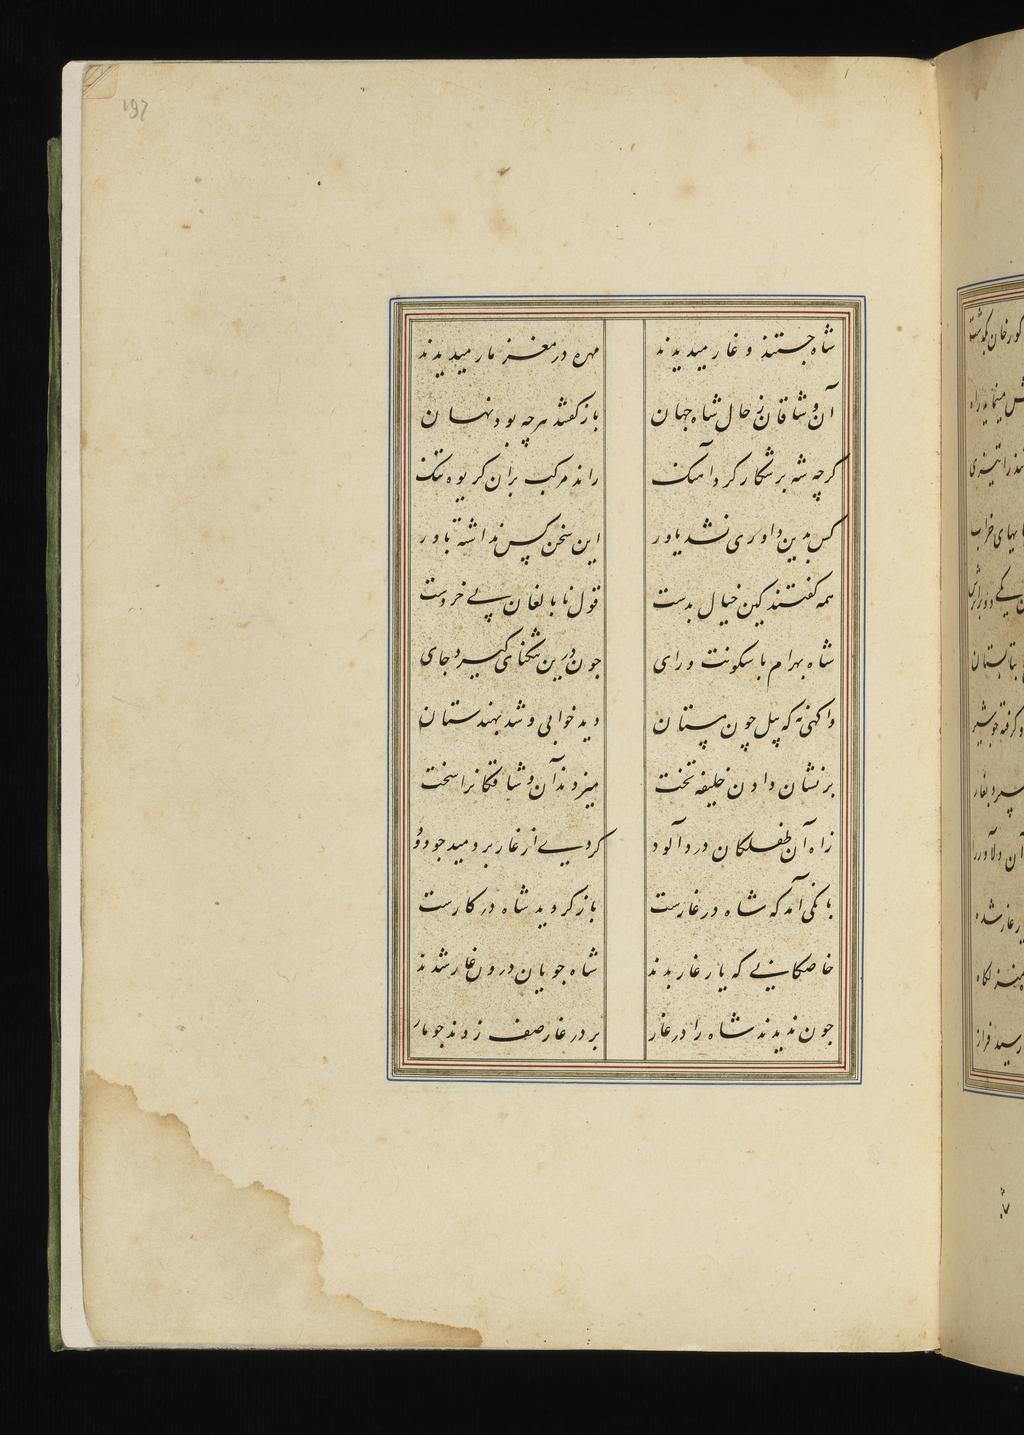 شاه جستند و غار میدیدند
مهره در مغز مار میدیدند
آن وشاقان ز حال شاه جهان
باز گفتند هرچه بود نهان
کرچه شه بر شکار کرد آهنک
راند مرکب بران کریوه تنک
کس بدین داوری نشد یاور
این سخن کس نداشته باور
همه گفتند کین خیال بدست
قول نابالغان بی خردست
شاه بهرام با سکونت و رای
چون درین تنکنای کیرد جای
واکهی نه که پیل چون مستان
دید خوابی و شد بهندستان
بر نشان دادن خلیفه تخت
میزدند آن وشاقکانرا سخت
ز آه آن طفلکان درد آلود
کردی از غار بر دمید جو دود
بانکی آمد که شاه در غارست
باز کردید شاه در کارست
خاصکانی که یار غار بدند
شاه جویان درون غار شدند
جون ندیدند شاه را در غار
بر در غار صف زدند جو مار